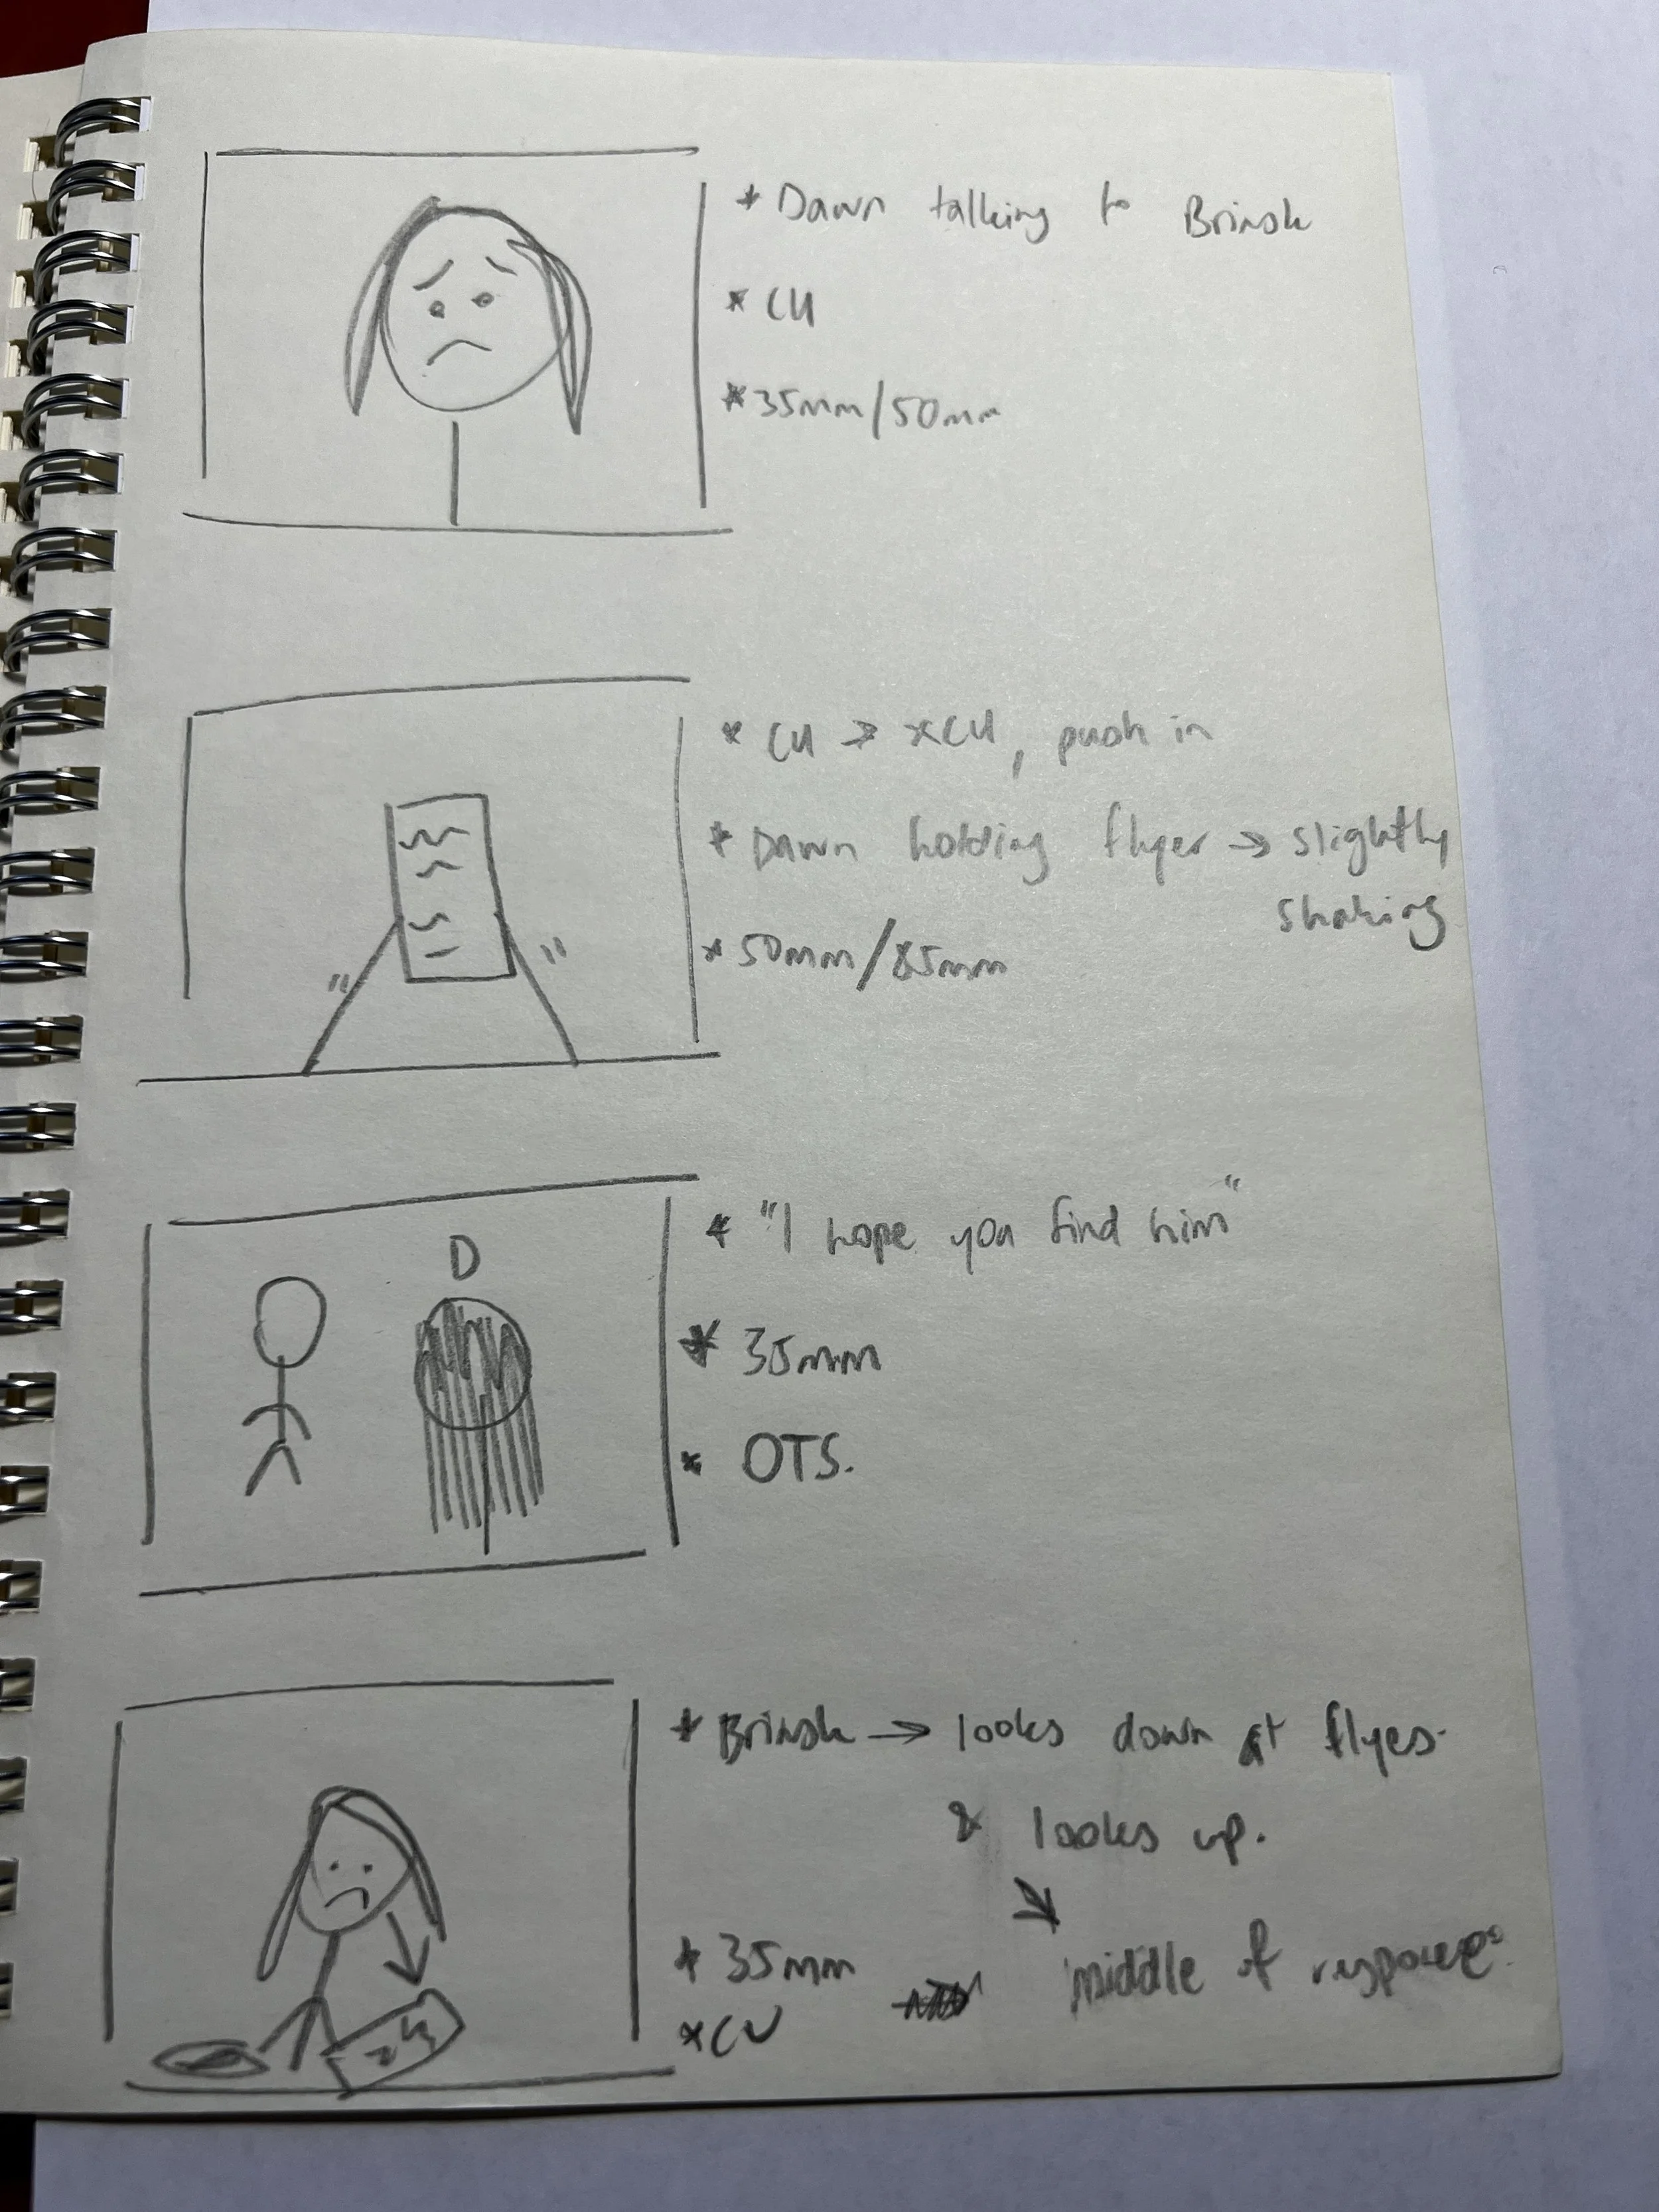 * Dawn talking to Brinsk
* CU
* 35mm/50mm
* CU → xCU, push in
* Dawn holding flyer → slightly
shaking
* 50mm/85mm
* "I hope you find him"
D
* 35mm
* OTS.
* Brinsk → looks down at flyes.
& looks up.
* 35mm
middle of
*CU